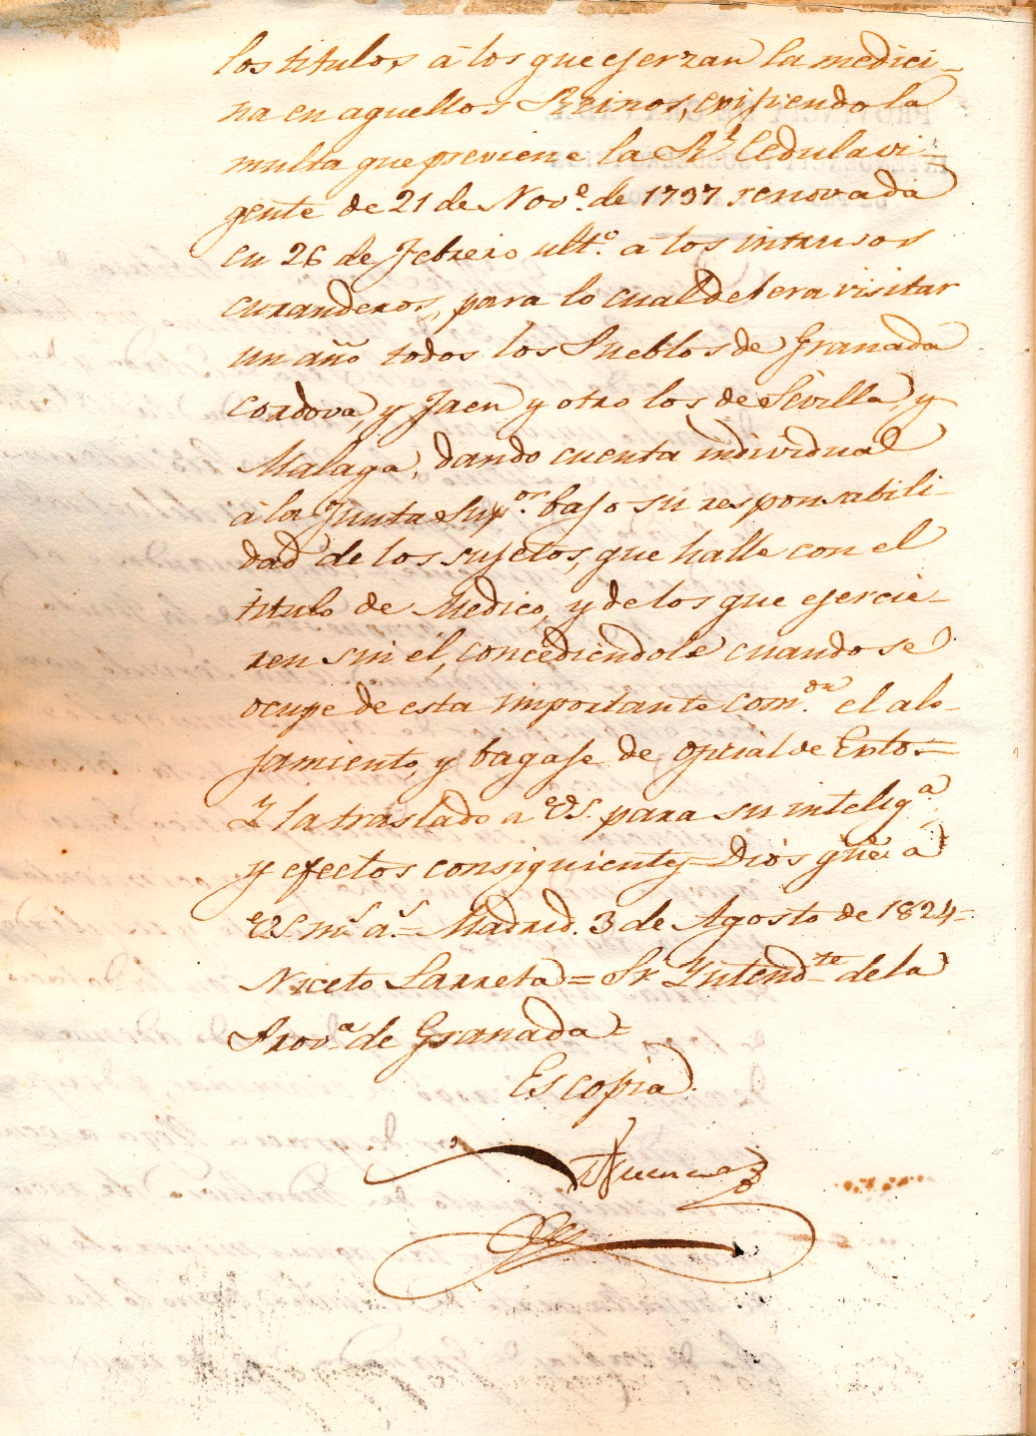 los titulos, á los que ejerzan la medici-
na en aquellos Reinos, exijiendo la
multa que previene la Rl. Cedula vi-
gente de 21 de Nove. de 1737 renovada
en 26 de Febrero ulto. á los intrusos
curanderos, para lo cual debera visitar
un año todos los Pueblos de Granada
Cordova, y Jaen y otro los de Sevilla, y
Malaga, dando cuenta individual
á la Junta Supor. bajo su responsabili-
dad de los sujetos, que halle con el
titulo de Medico, y de los que ejercie-
ren sin él, concediendole cuando se
ocupe de esta importante comon. el alo-
jamiento, y bagaje de oficial de Exto.=
Y la traslado a VS. para su inteliga.
y efectos consiguientes=Dios gũe. a
VS. ms. as.= Madrid. 3 de Agosto de 1824=
Niceto Larreta=Sr Yntendte. de la
Prova. de Granada=
Es copia